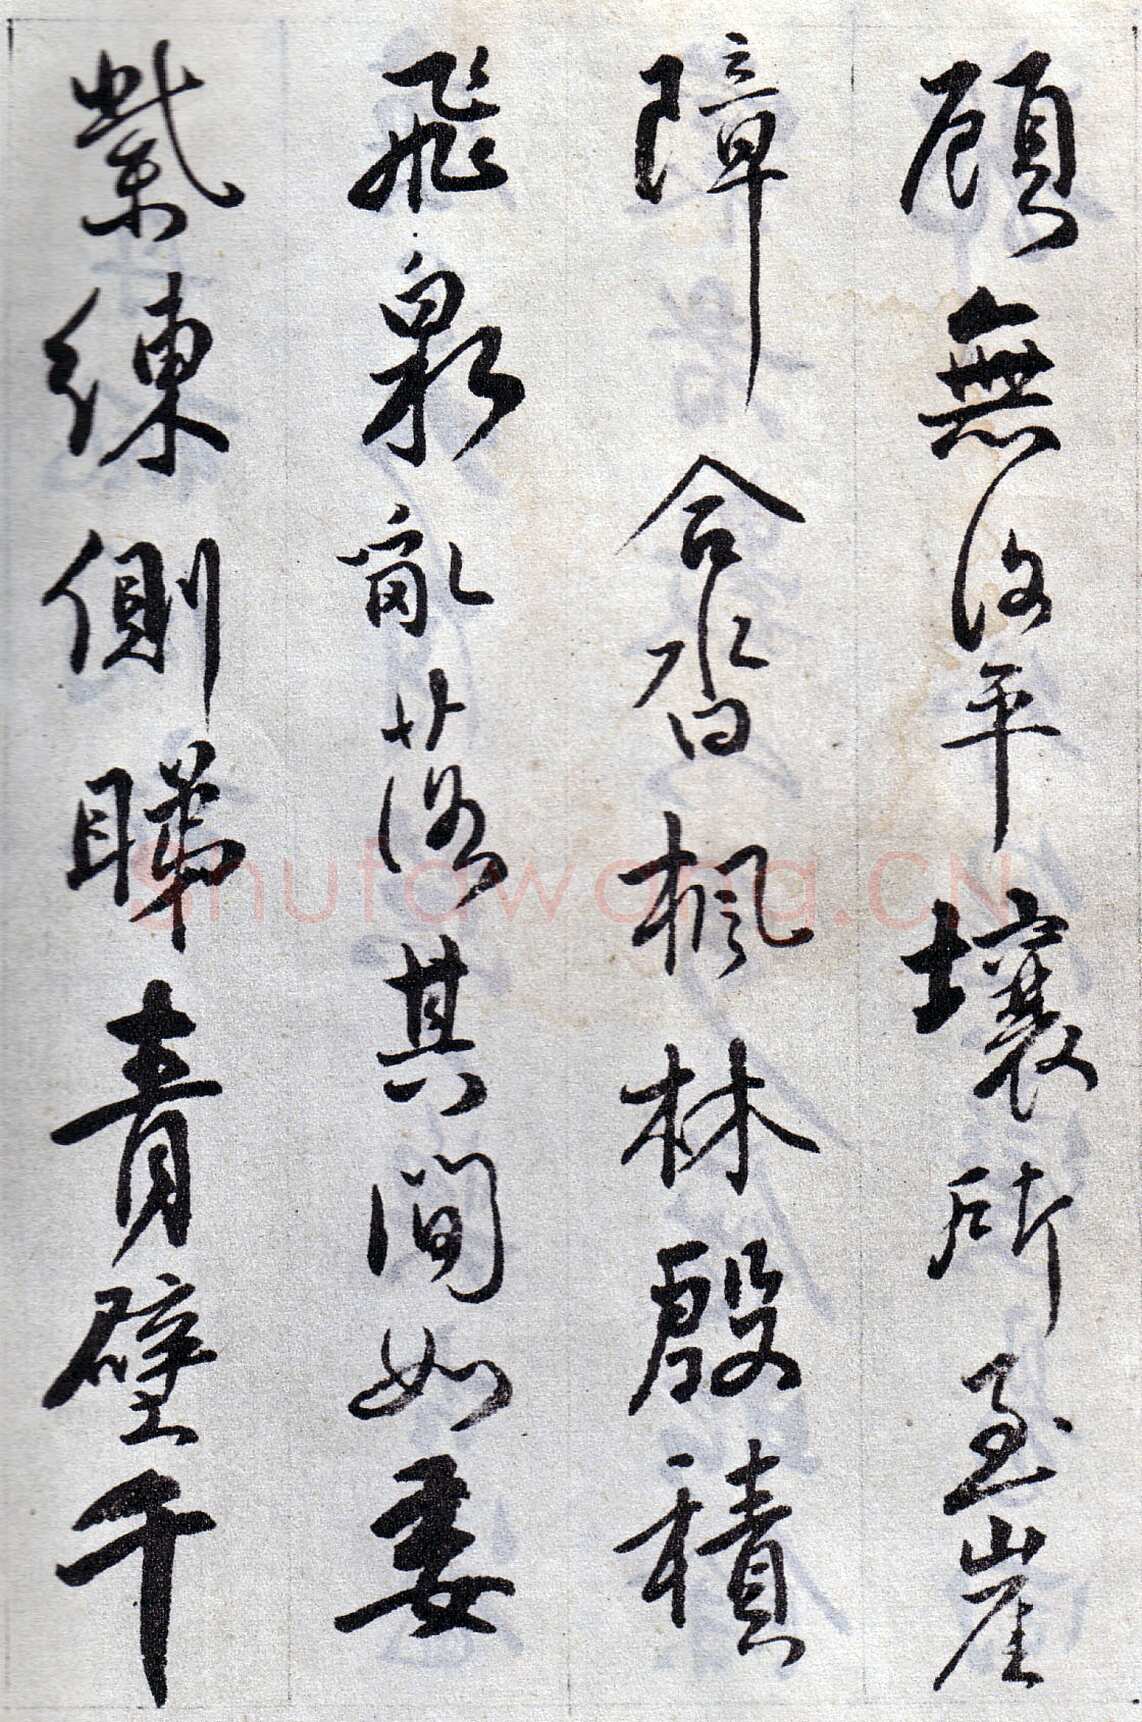 顾無没平壤所至崖
障合沓枫林殷積
飛泉亂落其间如委
紫練側睇青壁千
Shufawang.CN